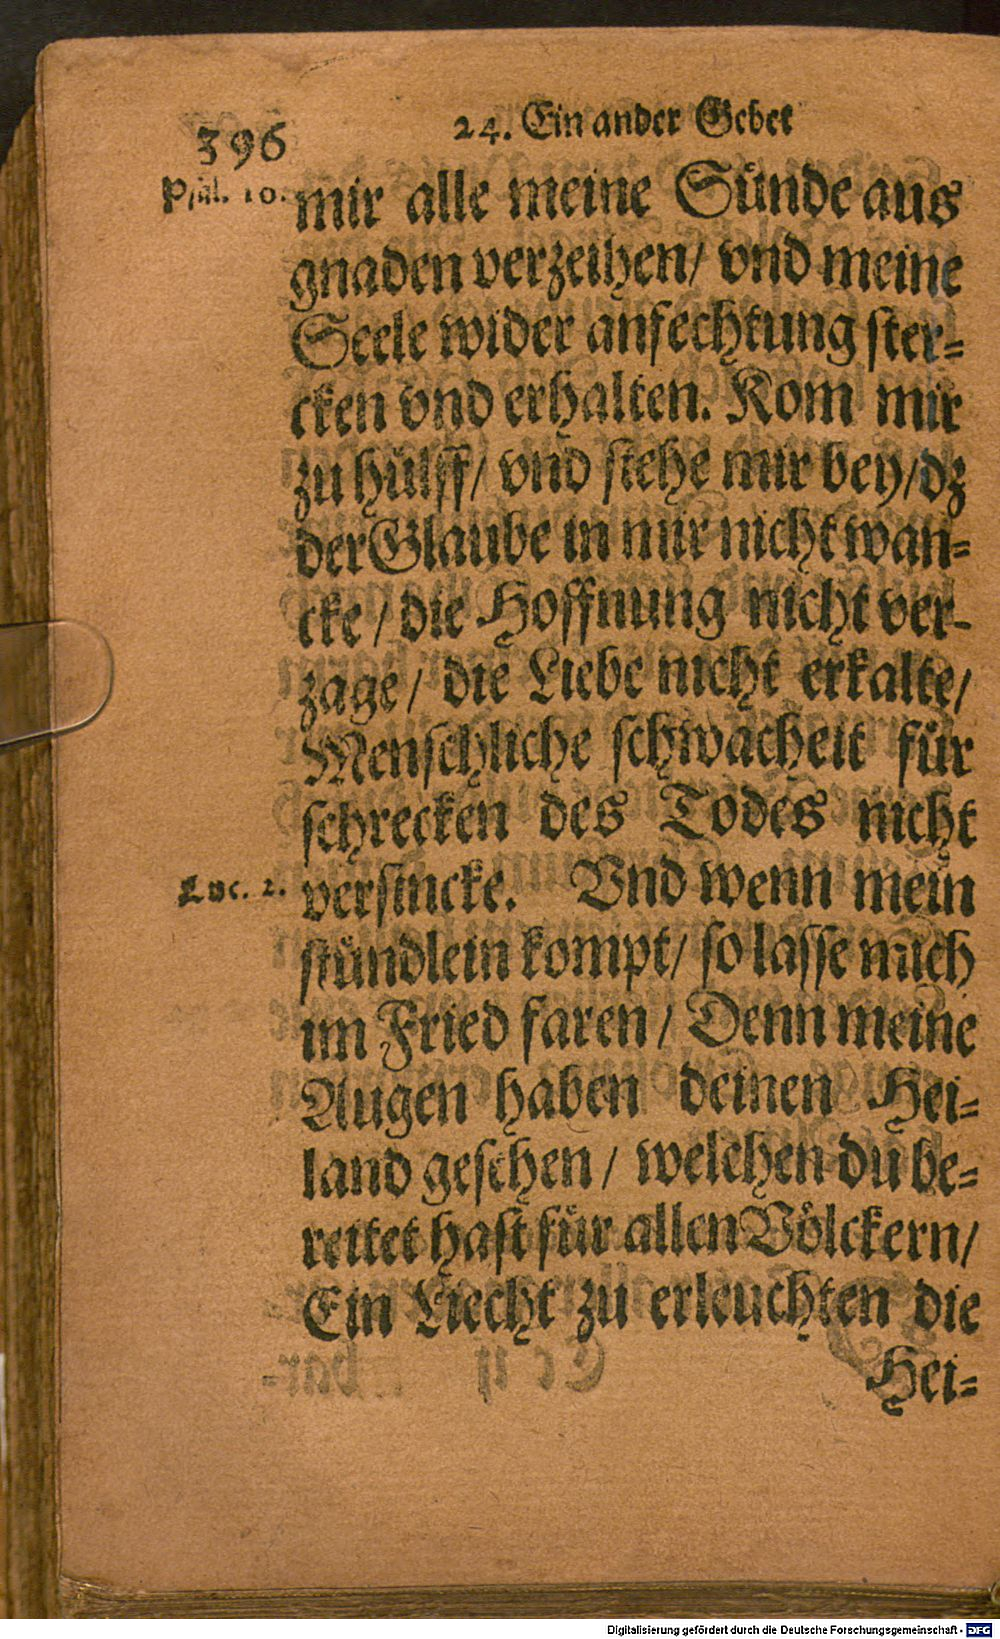 396
24. Ein ander Gebet
Psal. 10.
mir alle meine Sünde aus
gnaden verzeihen/ vnd meine
Seele wider anfechtung ster=
cken vnd erhalten. Kom mir
zu hülff/ vnd stehe mir bey/ dz
der Glaube in mir nicht wan=
cke / die Hoffnung nicht ver-
zage/ die Liebe nicht erkalte/
Menschliche schwacheit für
schrecken des Todes nicht
Luc. 2.
versincke. Vnd wenn mein
stündlein kompt/ so lasse mich
im Fried faren / Denn meine
Augen haben deinen Hei=
land gesehen / welchen du be=
reitet hast für allen Völckern/
Ein Liecht zu erleuchten die
Hei=
Digitalisierung gefördert durch die Deutsche Forschungsgemeinschaft - DFG